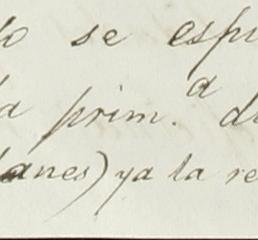 se esp
prim.ª d
anes) ya la re